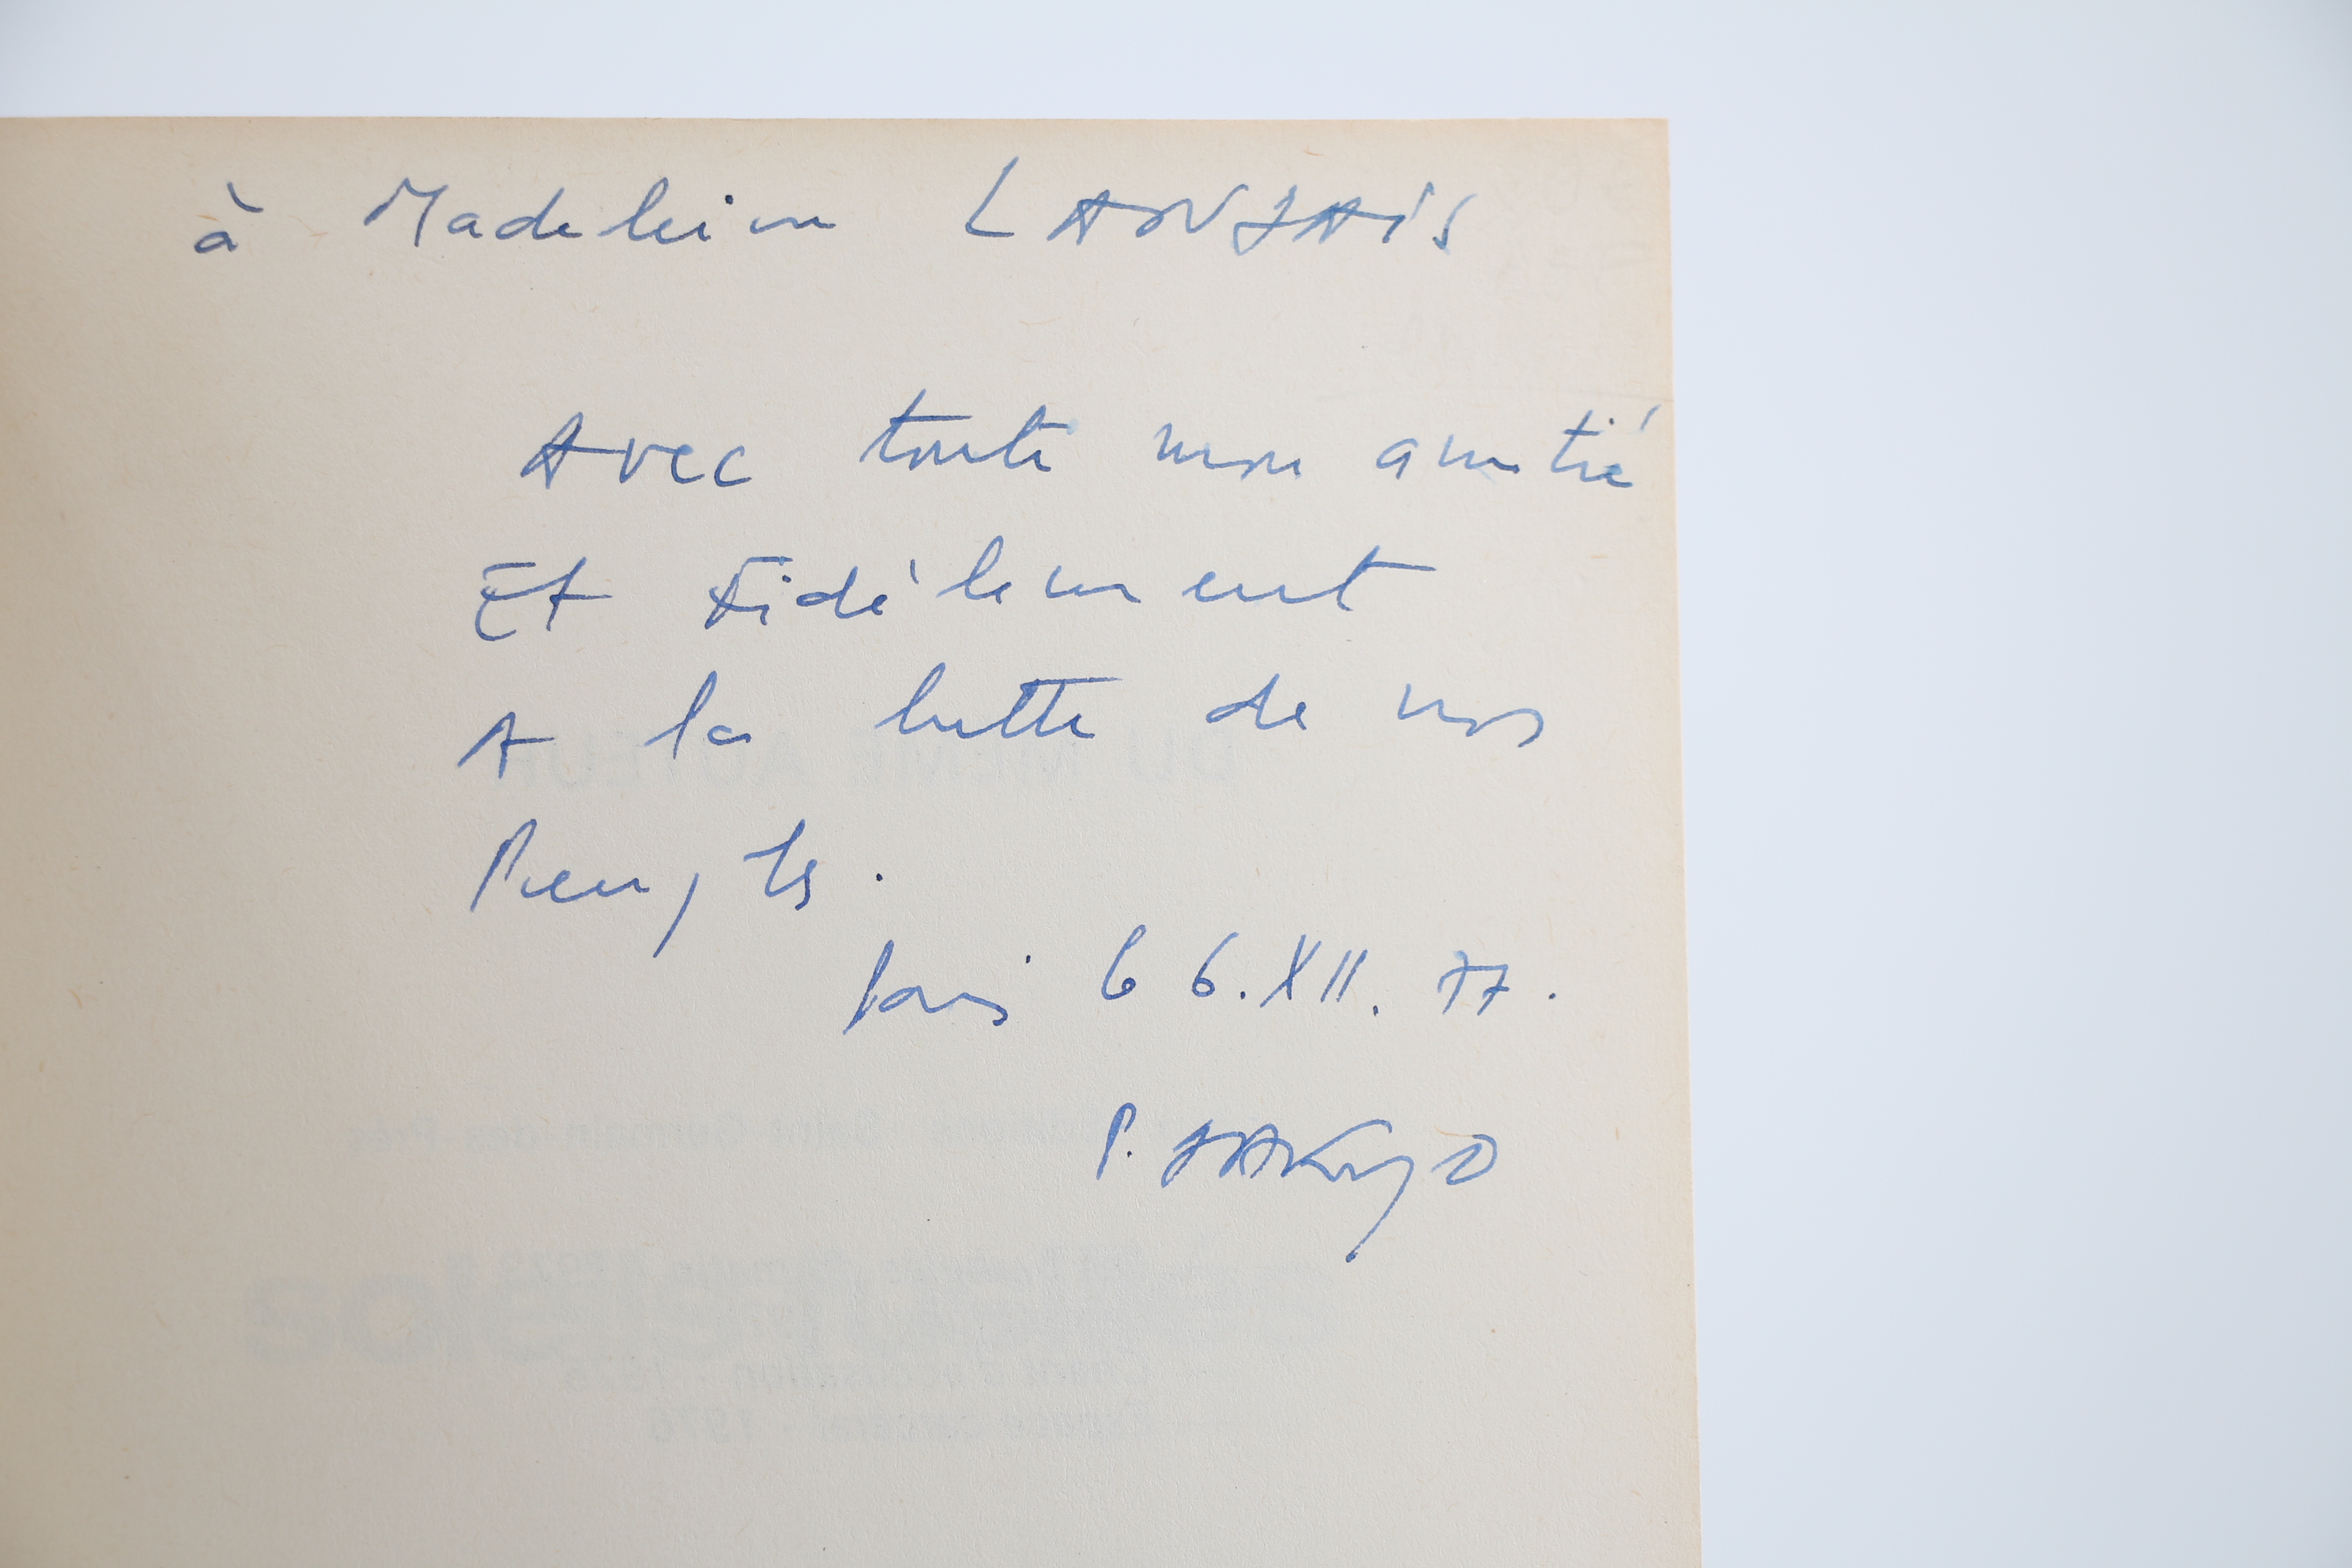 à Madeleine LANJAIS
Avec toute mon amitié
Et Fidèlement
A la lutte de nos
Peuples.
Paris 6 6.XII.77.
P.